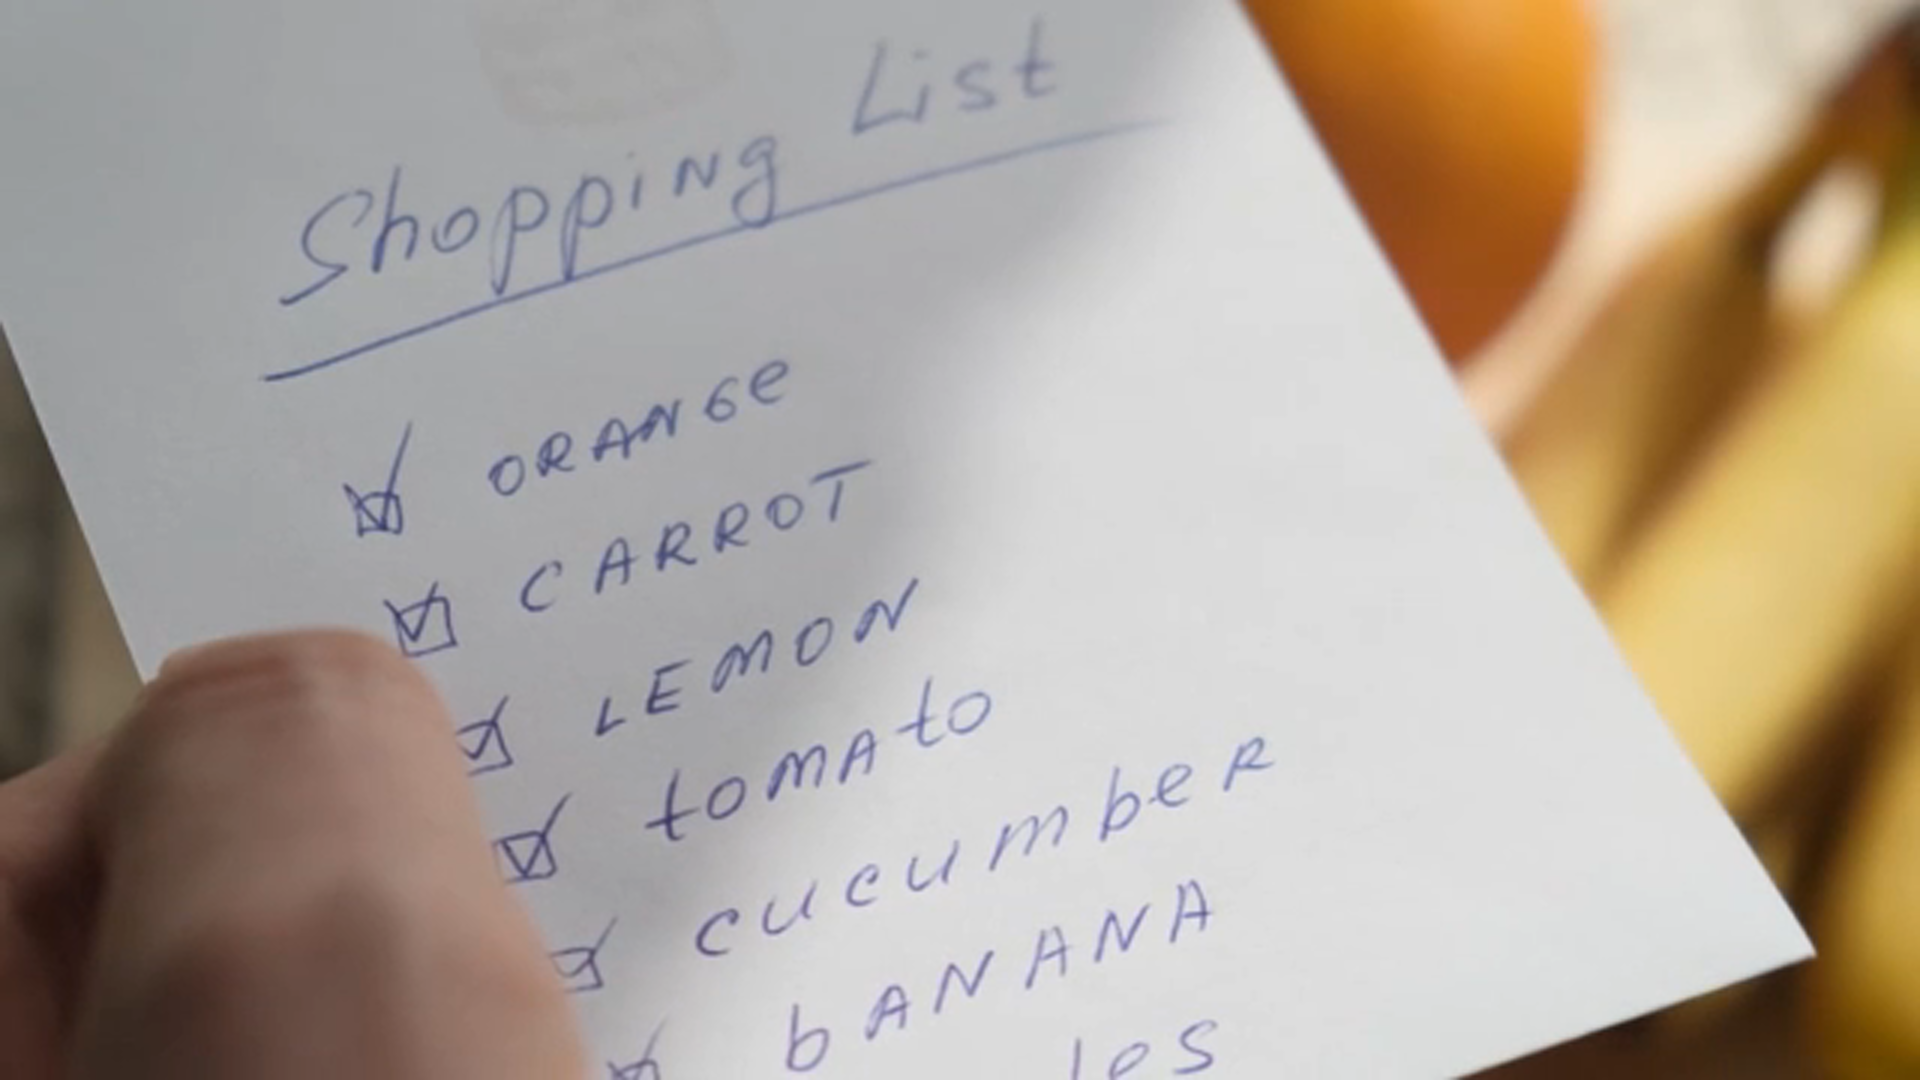 Shopping List
ORANGe
CARROT
LEMON
tomAto
cucumbeR
bANANA